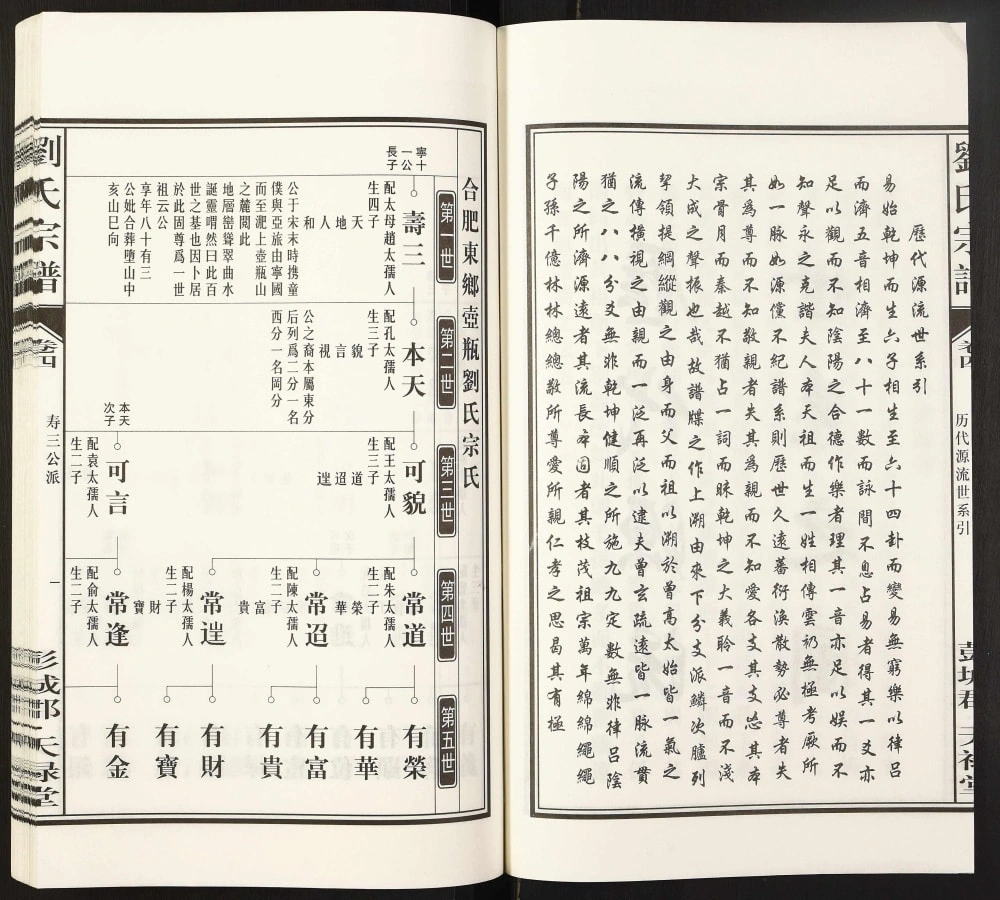 歷代源流世系引
易始乾坤而生六子相生至六十四卦而變易無窮樂以律呂
而濟五音相濟至八十一數而詠間不息占易者得其一爻亦
足以觀而不知陰陽之合德作樂者理其一音亦足以娱而不
知聲永之克諧夫人本天祖而生一姓相傳雲礽無極考厥所
如一脉如源儻不紀譜系則歷世久遠蕃衍渙散勢必尊者失
其為尊而不知敬親者失其為親而不知愛各支其支忘其本
宗骨月而秦越不猶占一詞而昧乾坤之大義聆一音而不淺
大成之聲振也哉故譜牒之作上溯由來下分支派鱗次臚列
挈領提綱縱觀之由身而父而祖以溯於曾高太始皆一氣之
流傳橫視之由親而一泛再泛以逮夫曾玄疏遠皆一脉流貫
猶之八八分爻無非乾坤健順之所施九九定數無非律呂陰
陽之所濟源遠者其流長本固者其枝茂祖宗萬年綿綿繩繩
子孫千億林林總總敬所尊愛所親仁孝之思曷其有極
劉氏宗譜
卷四
历代源流世系引
彭城郡
天禄堂
合肥東鄉壺瓶劉氏宗氏
第一世
第二世
第三世
第四世
第五世
寧十
一公
長子
壽三
配太母趙太孺人
生四子
天
地
人
和
公于宋末時携童
僕與亞旅由寧國
而至淝上壺瓶山
之麓閱此
地層巒聳翠曲水
誕靈喟然曰此百
世之基也因卜居
於此固尊爲一世
祖云公
享年八十有三
公妣合葬墮山中
亥山巳向
本天
配孔太孺人
生三子
貌
言
視
公之裔本屬東分
后列爲二分一名
西分一名岡分
可貌
配王太孺人
生三子
道
迢
逞
本天
次子
可言
配袁太孺人
生二子
常道
配朱太孺人
生二子
榮
華
常迢
配陳太孺人
生二子
富
貴
常逞
配楊太孺人
生二子
財
寶
常逢
配俞太孺人
生二子
有榮
有華
有富
有貴
有財
有寶
有金
劉氏宗譜
卷四
寿三公派
一
彭城郡
天禄堂